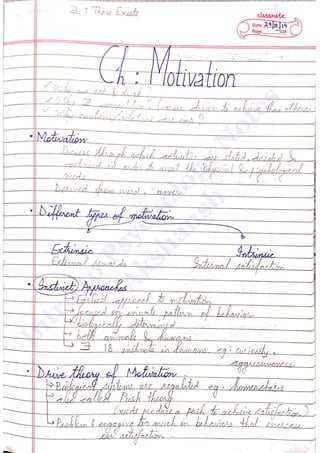 ∃ : There Exists
classmate
Date 29/11/19
Page
Ch : Motivation
✓ Why we eat & drink?
✓ Why ∃ personalities? (more driven to achieve than others
✓ Why emotions/relations are imp?
• Motivation
Process through which activities are started, directed &
continued in order to meet the Physical & psychological
needs
Derived from word, "movere
• Different types of motivation
Extrinsic Intrinsic
External rewards Internal satisfaction
• Instinct Approaches
→ Earliest approach to motivation
→ focused on innate pattern of behavior
→ biologically determined
→ both animals & humans
→ ∃ 18 instincts in humans eg: curiosity,
aggressiveness
• Drive theory of Motivation
→ Biological systems are regulated eg: homeostasis
→ also called Push theory
(needs produce a push to achieve satisfaction)
→ Problem: engaging too much in behaviors that increase
our satisfaction